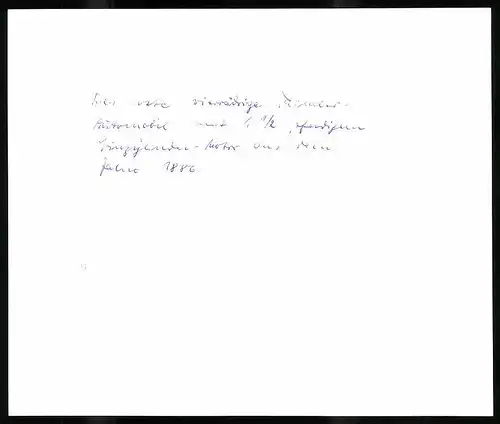 Das erste vierrädrige Daimler-
Automobil mit 1 1/2 pferdigem
Einzylinder-Motor aus dem
Jahre 1886